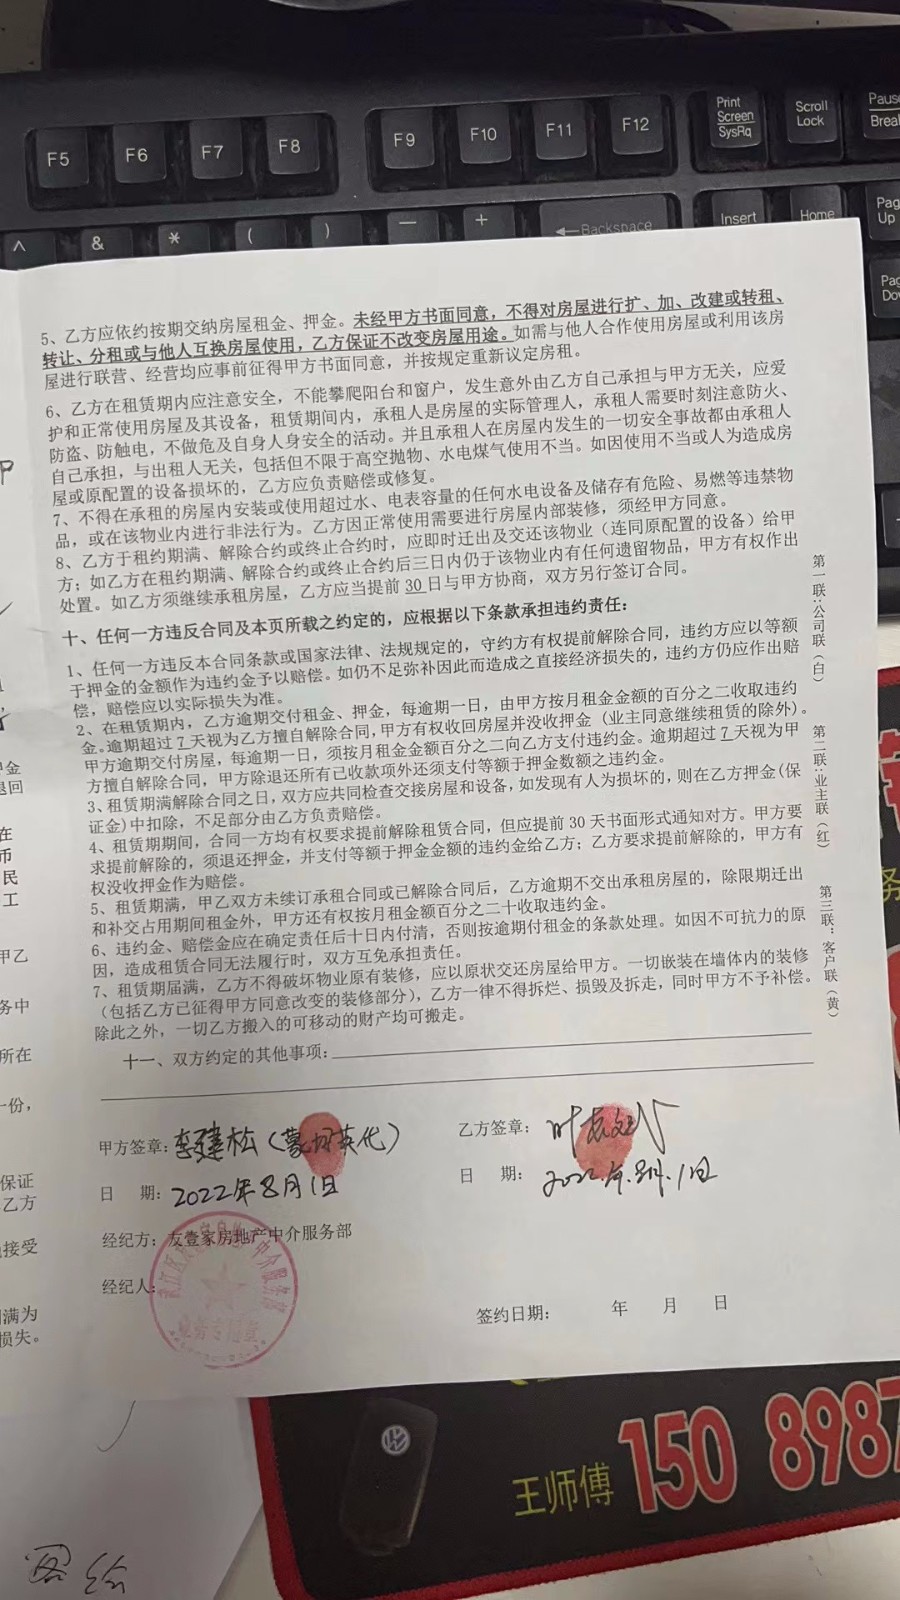 F5 F6 F7 F8 F9 F10 F11 F12 Print Screen SysRq Scroll Lock Pause Break
^ & * ( ) — + ←Backspace Insert Home Page Up
5、乙方应依约按期交纳房屋租金、押金。未经甲方书面同意，不得对房屋进行扩、加、改建或转租、
转让、分租或与他人互换房屋使用，乙方保证不改变房屋用途。如需与他人合作使用房屋或利用该房
屋进行联营、经营均应事前征得甲方书面同意，并按规定重新议定房租。
6、乙方在租赁期内应注意安全，不能攀爬阳台和窗户，发生意外由乙方自己承担与甲方无关，应爱
护和正常使用房屋及其设备，租赁期间内，承租人是房屋的实际管理人，承租人需要时刻注意防火、
防盗、防触电，不做危及自身人身安全的活动。并且承租人在房屋内发生的一切安全事故都由承租人
自己承担，与出租人无关，包括但不限于高空抛物、水电煤气使用不当。如因使用不当或人为造成房
屋或原配置的设备损坏的，乙方应负责赔偿或修复。
7、不得在承租的房屋内安装或使用超过水、电表容量的任何水电设备及储存有危险、易燃等违禁物
品，或在该物业内进行非法行为。乙方因正常使用需要进行房屋内部装修，须经甲方同意。
8、乙方于租约期满、解除合约或终止合约时，应即时迁出及交还该物业（连同原配置的设备）给甲
方；如乙方在租约期满、解除合约或终止合约后三日内仍于该物业内有任何遗留物品，甲方有权作出
处置。如乙方须继续承租房屋，乙方应当提前 30 日与甲方协商，双方另行签订合同。
十、任何一方违反合同及本页所载之约定的，应根据以下条款承担违约责任：
1、任何一方违反本合同条款或国家法律、法规规定的，守约方有权提前解除合同，违约方应以等额
于押金的金额作为违约金予以赔偿。如仍不足弥补因此而造成之直接经济损失的，违约方仍应作出赔
偿，赔偿应以实际损失为准。
2、在租赁期内，乙方逾期交付租金、押金，每逾期一日，由甲方按月租金金额的百分之二收取违约
金。逾期超过 7 天视为乙方擅自解除合同，甲方有权收回房屋并没收押金（业主同意继续租赁的除外）。
甲方逾期交付房屋，每逾期一日，须按月租金金额百分之二向乙方支付违约金。逾期超过 7 天视为甲
方擅自解除合同，甲方除退还所有已收款项外还须支付等额于押金数额之违约金。
3、租赁期满解除合同之日，双方应共同检查交接房屋和设备，如发现有人为损坏的，则在乙方押金(保
证金)中扣除，不足部分由乙方负责赔偿。
4、租赁期期间，合同一方均有权要求提前解除租赁合同，但应提前 30 天书面形式通知对方。甲方要
求提前解除的，须退还押金，并支付等额于押金金额的违约金给乙方；乙方要求提前解除的，甲方有
权没收押金作为赔偿。
5、租赁期满，甲乙双方未续订承租合同或已解除合同后，乙方逾期不交出承租房屋的，除限期迁出
和补交占用期间租金外，甲方还有权按月租金额百分之二十收取违约金。
6、违约金、赔偿金应在确定责任后十日内付清，否则按逾期付租金的条款处理。如因不可抗力的原
因，造成租赁合同无法履行时，双方互免承担责任。
7、租赁期届满，乙方不得破坏物业原有装修，应以原状交还房屋给甲方。一切嵌装在墙体内的装修
（包括乙方已征得甲方同意改变的装修部分），乙方一律不得拆烂、损毁及拆走，同时甲方不予补偿。
除此之外，一切乙方搬入的可移动的财产均可搬走。
十一、双方约定的其他事项：
甲方签章：李建松（蒙 英代）
乙方签章：叶
日 期：2022年8月1日
日 期：2022.年.8月.1日
经纪方：友壹家房地产中介服务部
经纪人：
签约日期： 年 月 日
第一联：公司联（白）
第二联：业主联（红）
第三联：客户联（黄）
王师傅 150 8987